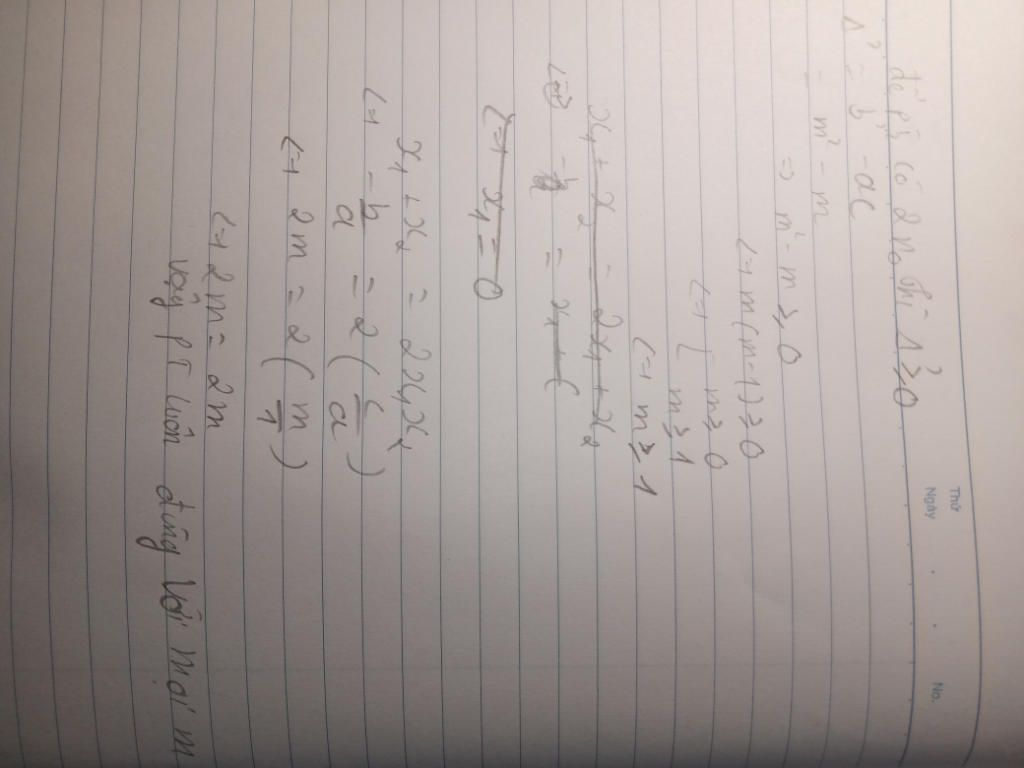 Thứ
Ngày . . No.
để pt có 2 no thì Δ' ≥ 0
Δ' = b' - ac
= m² - m
=> m² - m ≥ 0
<-> m(m-1) ≥ 0
<-> [ m ≥ 0
m ≥ 1
<-> m ≥ 1
x₁ + x₂ = 2x₁ + x₂
<-> -b = x₁ + (
<-> x₁ = 0
x₁ + x₂ = 2x₁x₂
<-> -b/a = 2(c/a)
<-> 2m = 2(m/1)
<-> 2m = 2m
vậy PT luôn đúng với mọi m